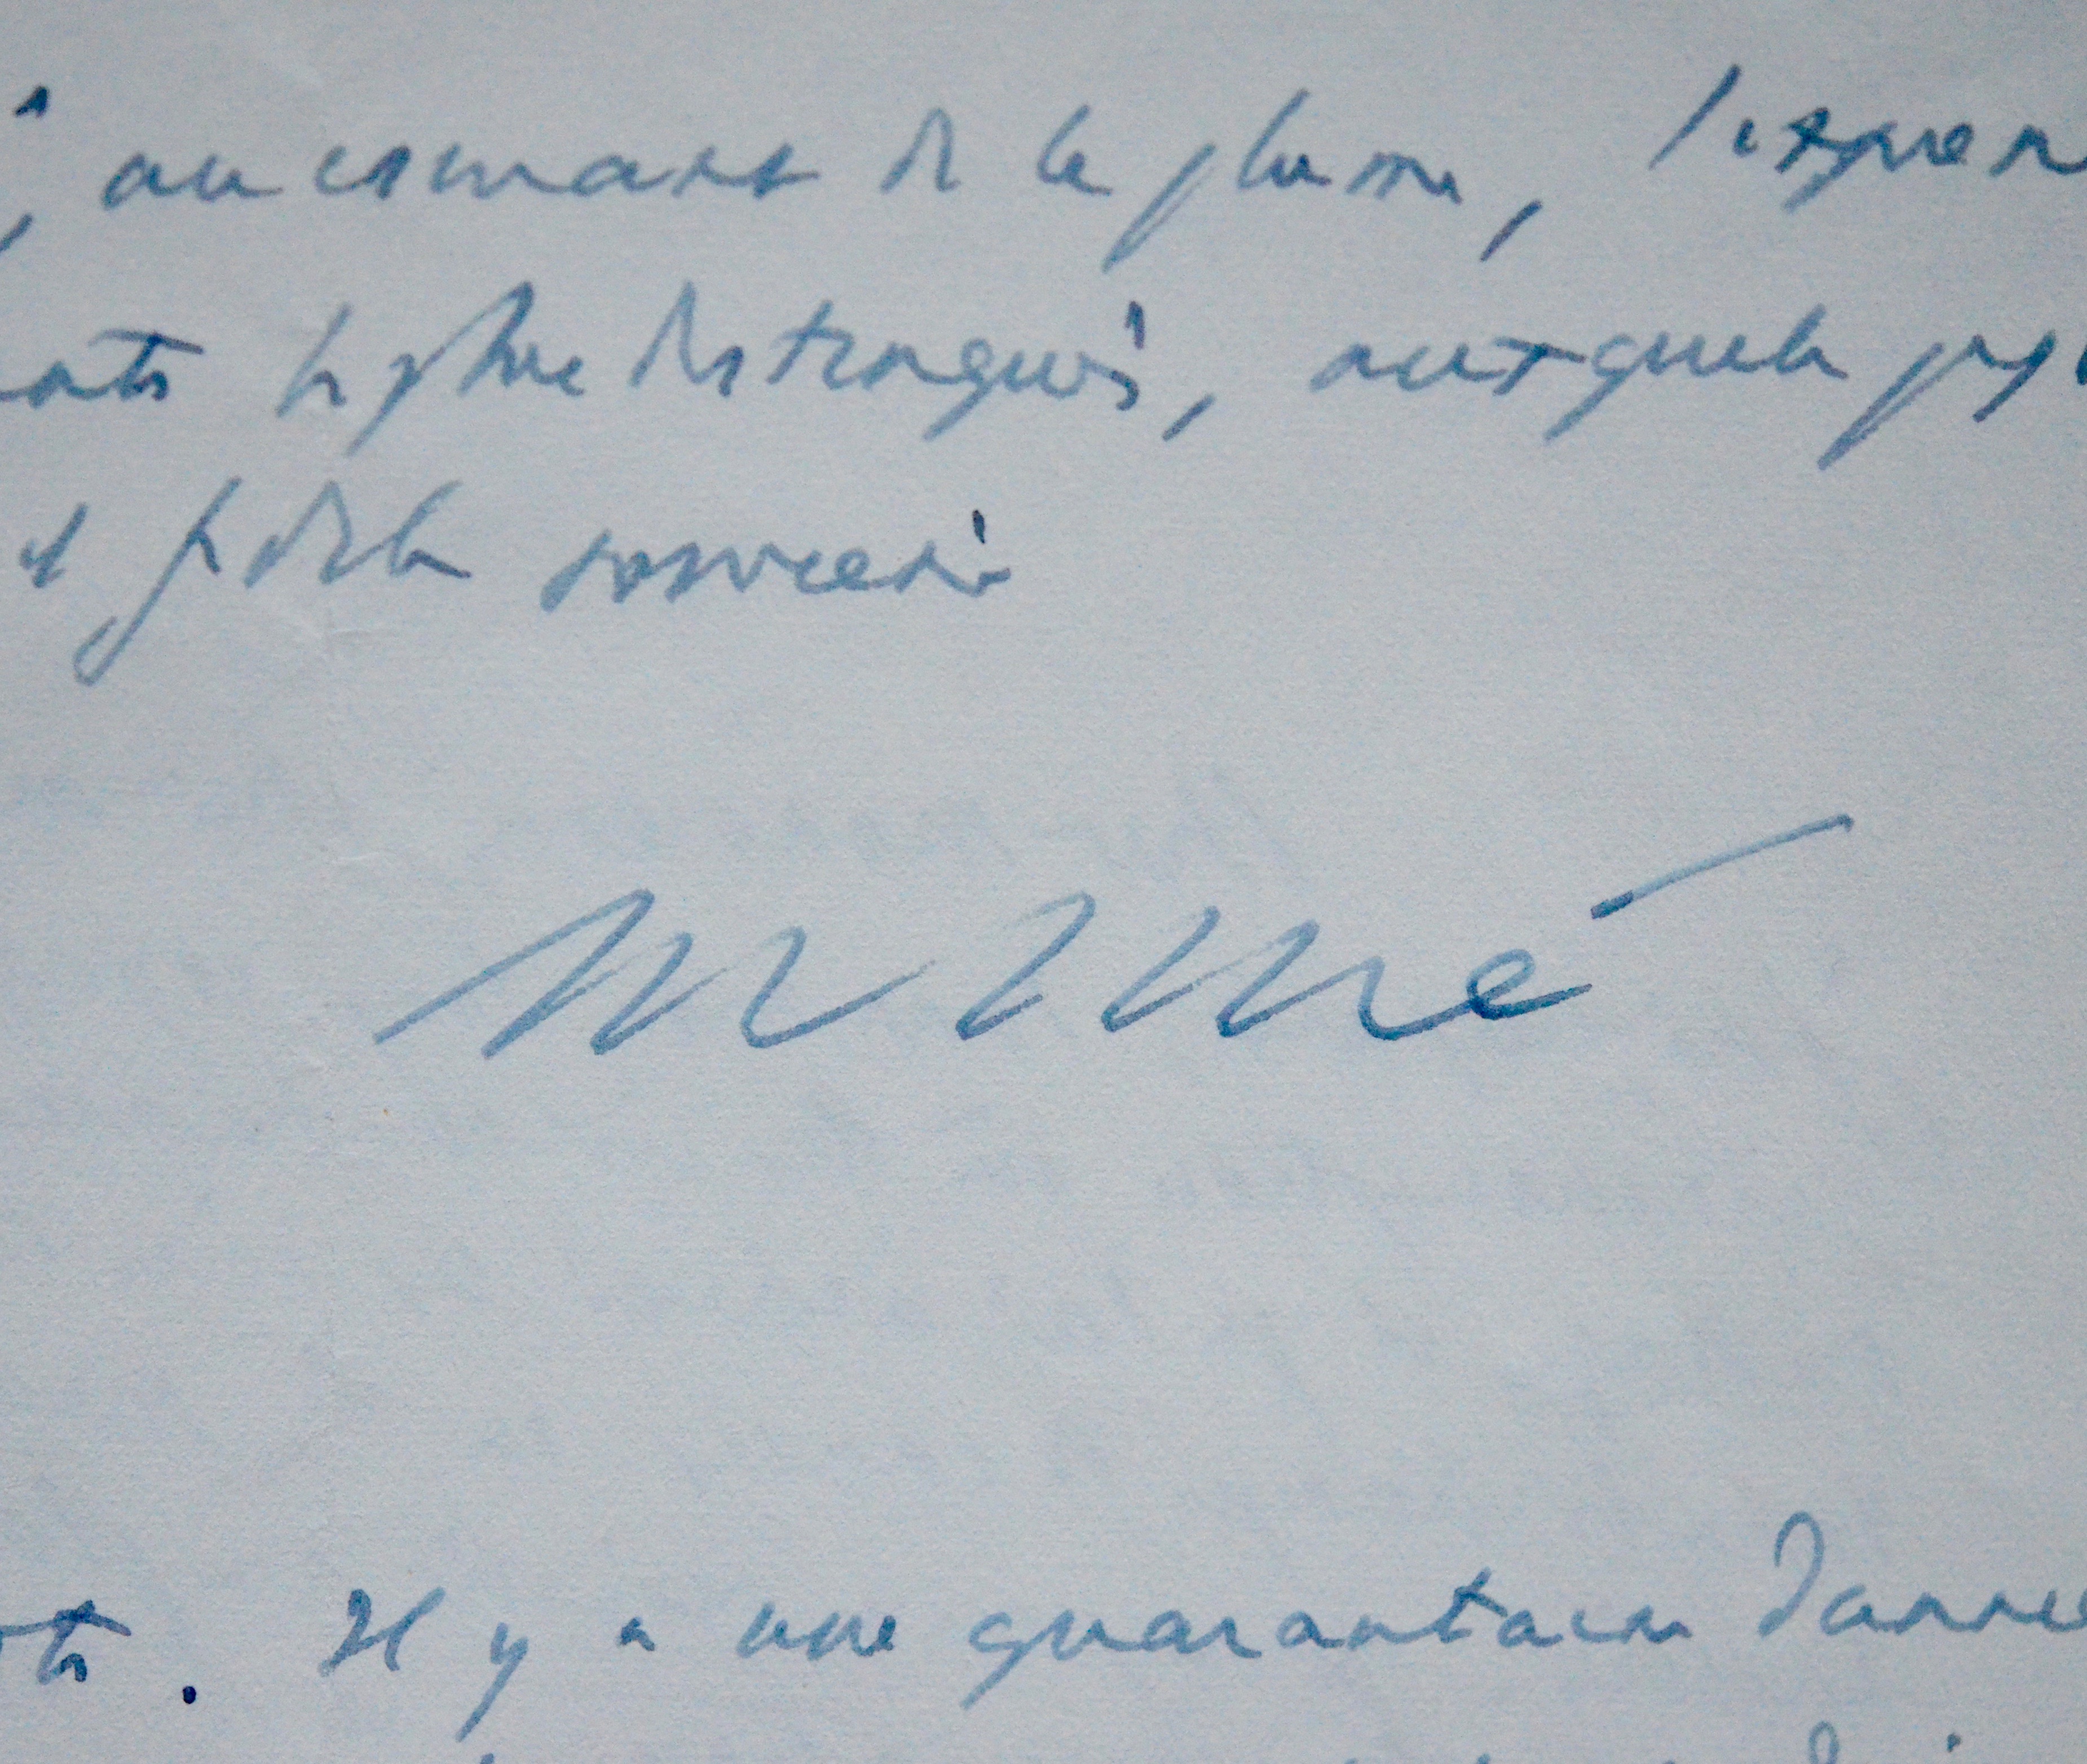 , au courant de la plume, l'expres
ents les plus distingués, auxquels je j
et fidèle souvenir
M Aimé
. Il y a une quarantaine d'anné